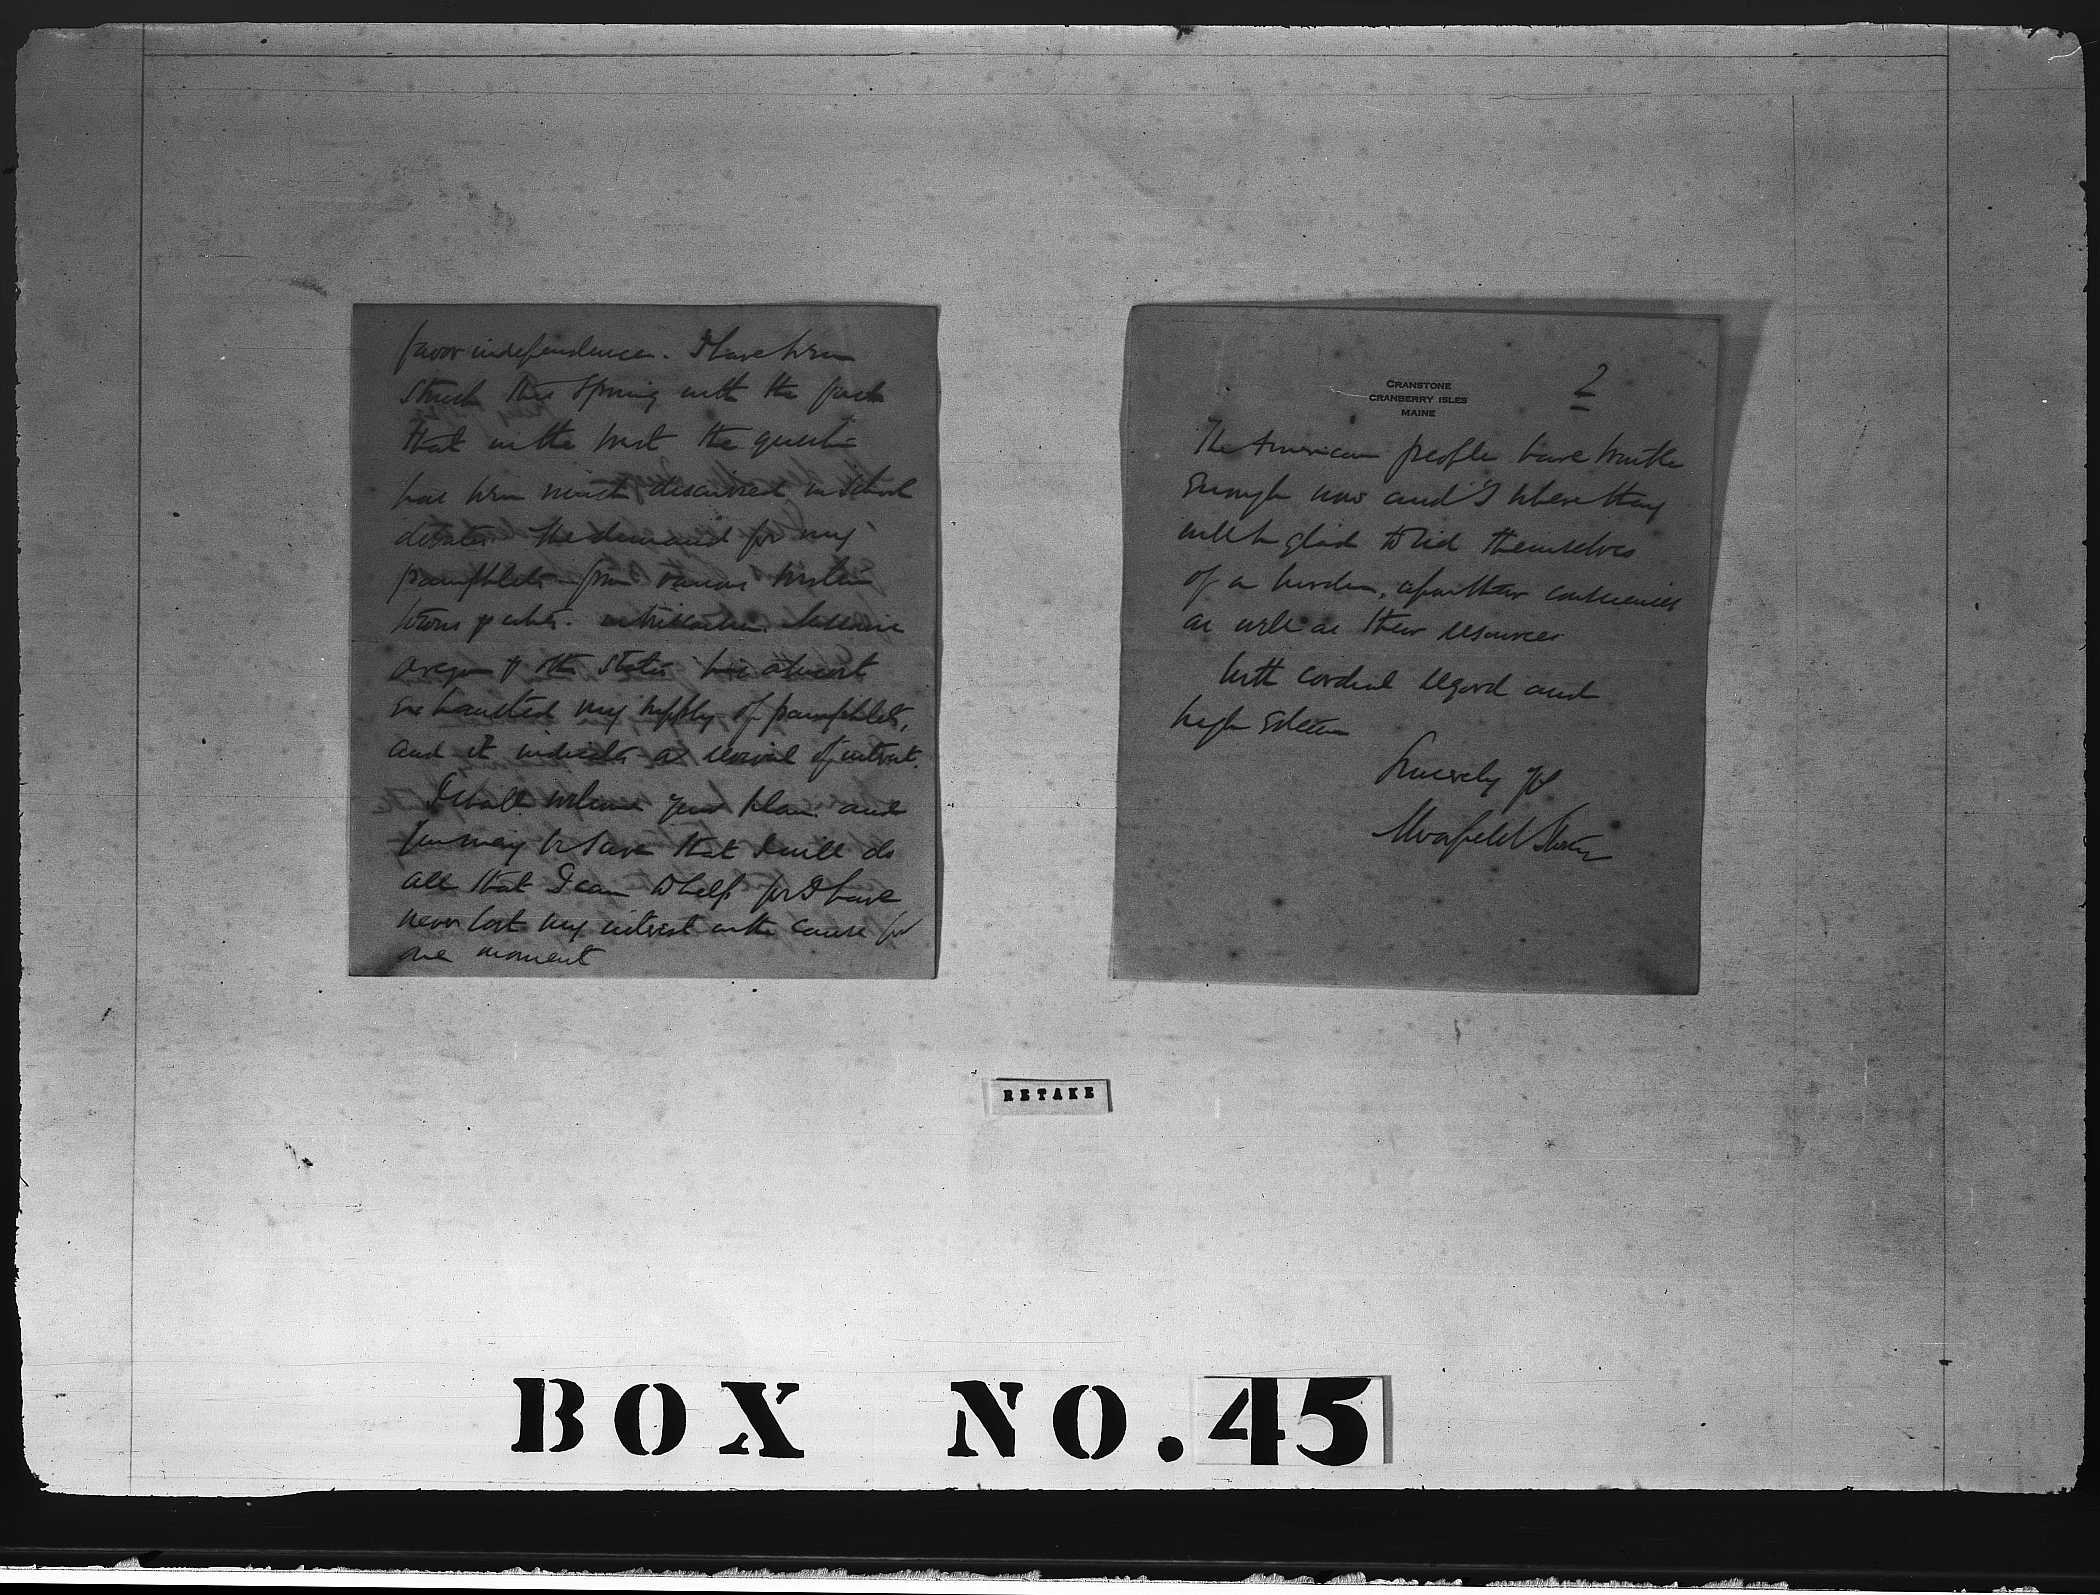 favor independence. I have been
struck this spring with the fact
that in the west the question
has been much discussed in school
debates. The demand for my
pamphlets from various western
towns & cities.
Oregon & other States has almost
exhausted my supply of pamphlets,
and it indicates a revival of interest.
I shall welcome your plan and
you may be sure that I will do
all that I can to help for I have
never lost my interest in the cause for
one moment
CRANSTONE
CRANBERRY ISLES
MAINE
2
The American people have trouble
enough now and I believe they
will be glad to rid themselves
of a burden, upon their consciences
as well as their resources
With cordial regard and
high esteem
Sincerely yrs
Moorfield Storey
RETAKE
BOX NO. 45